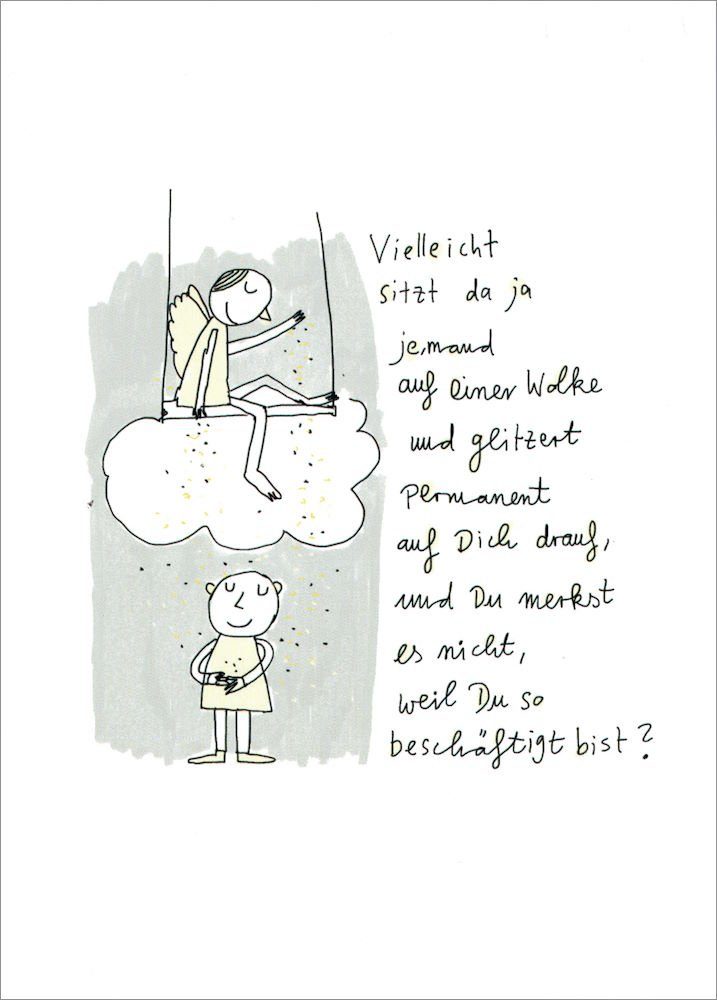 Vielleicht
sitzt da ja
jemand
auf einer Wolke
und glitzert
permanent
auf Dich drauf,
und Du merkst
es nicht,
weil Du so
beschäftigt bist?